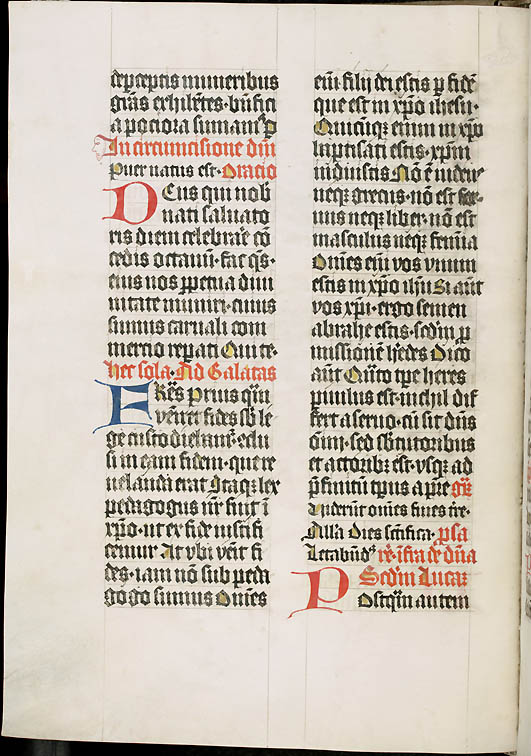 de p̄ceptis muneribus
gr̄as exhib̄ētes· bn̄fici
a pociora sumam9 P
In circumcisione dn̄i
Puer natus est· Oratio
Deus qui nob̄
nati saluato
ris diem celebrar̄e cō
cedis octauū· fac qs̄·
eius nos ꝑpetua diui
nitate muniri· cuius
sumus carnali com
mercio reꝑati Qui te·
hec sola· Ad Galatas
FRēs Prius qͣm
veniret fides sb̄ le
ge custodiebam̄· cōclu
si in eam fidem· que re
uelanda erat Itaqꝫ lex
pedagogus nr̄ fuit ī
xp̄o· ut ex fide iustifi
cemur At vbi venit fi
des· iam nō sub peda
gogo sumus Omēs
eni͂ filij dei estis ꝑ fidē
que est in xp̄o ihesu·
Quicūqꝫ enim in xp̄o
baptisati estis· xp̄m
induistis Nō ē iudeus
neqꝫ grecus· nō est ser
uus neqꝫ liber· nō est
masculus neqꝫ femīa
Omēs eni͂ vos vnum
estis in xp̄o ih̄u Si aūt
vos xp̄i· ergo semen
abrahe estis· scd̄m ꝓ
missionē h̄edes Dico
aūt Quāto tp̄e heres
ꝑuulus est· nichil dif
fert a seruo· cū sit dn̄s
oīm· sed sb̄ tutoribus
et actoribꝫ est· vsqꝫ ad
p̄finitū tp̄us a pr̄e Gr̄
Viderūt omēs fines tr̄e·
All̄a Dies sc̄tifica· ꝓsa
Letabūd9 re· īfra de dn̄a
Scd̄m Lucaꝫ
Postqͣm autem